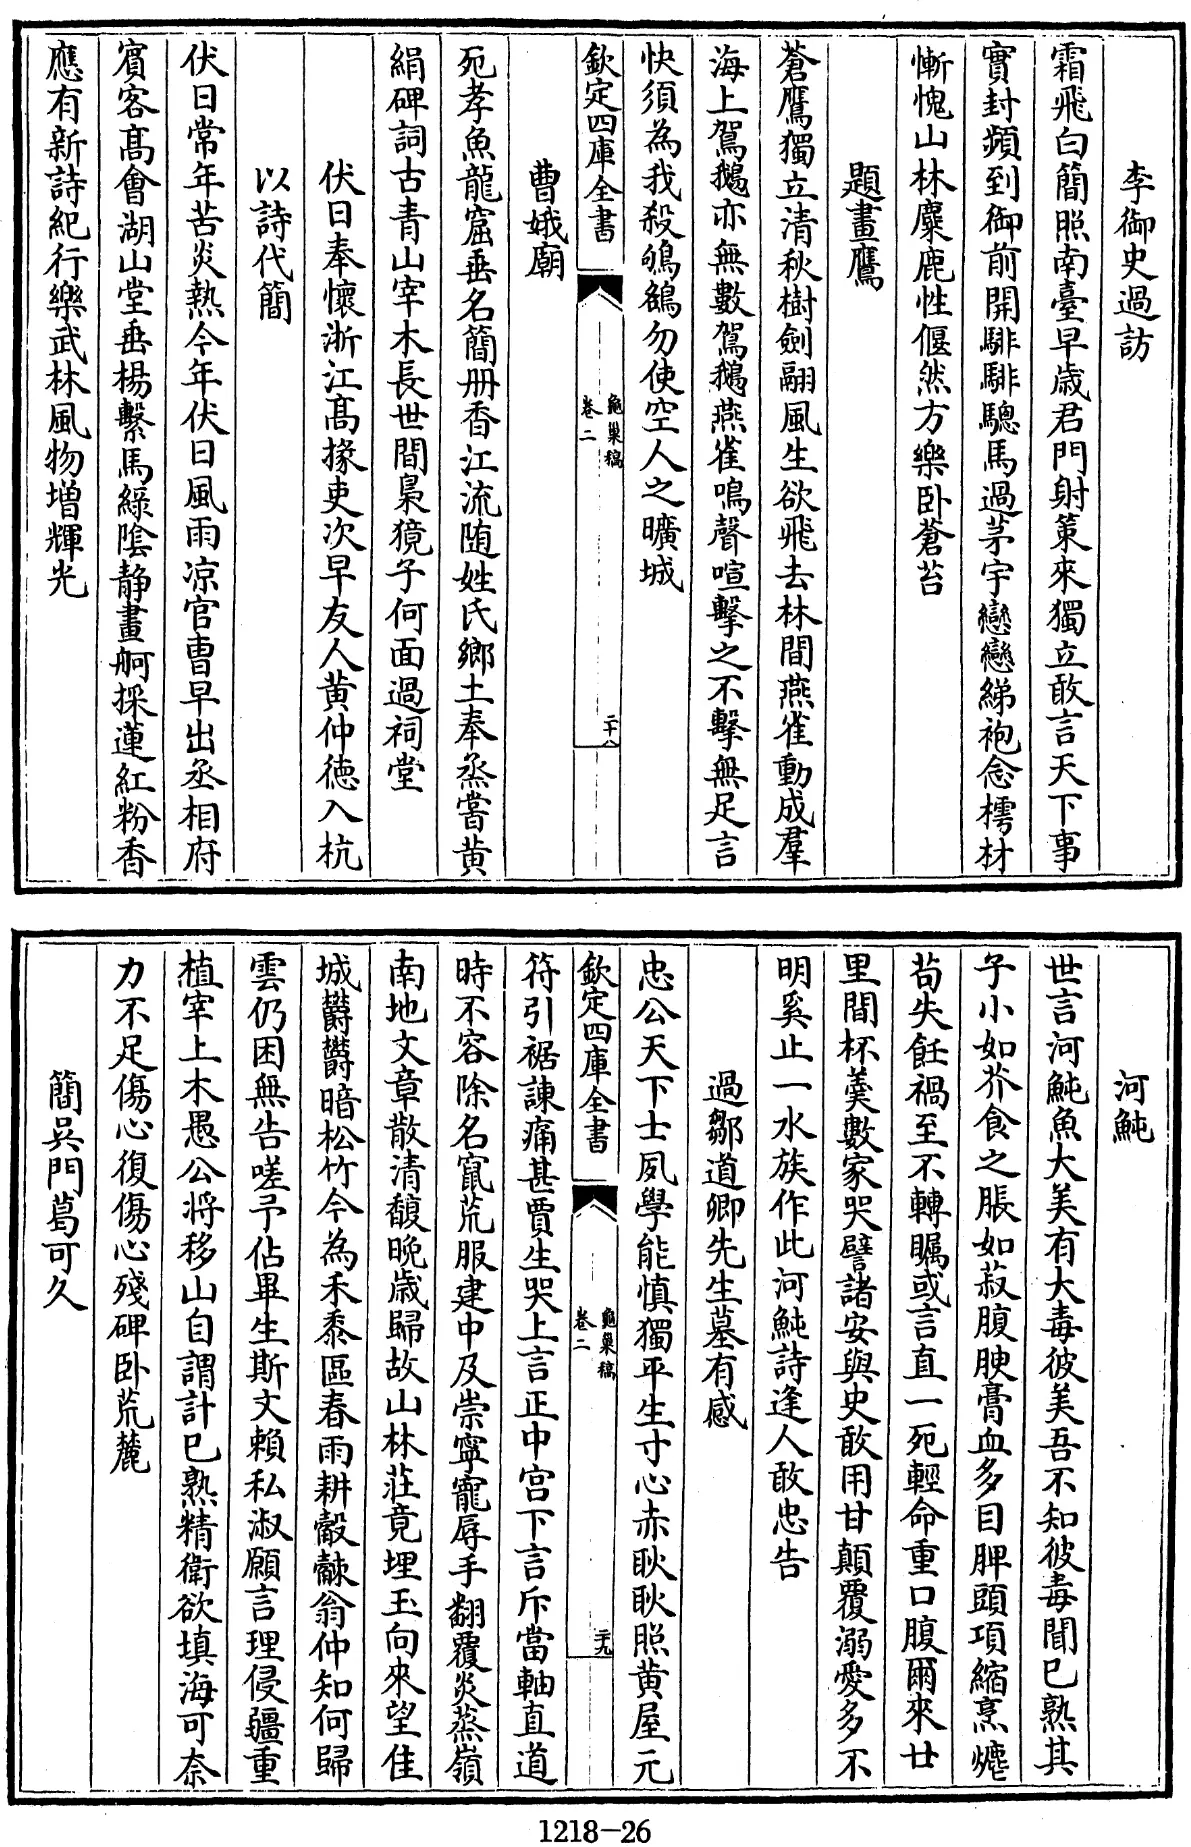 李御史過訪
霜飛白簡照南臺早歲君門射策來獨立敢言天下事
實封頻到御前開騑騑驄馬過茅宇戀戀綈袍念樗材
慚愧山林麋鹿性偃然方樂卧蒼苔
題畫鷹
蒼鷹獨立清秋樹劍翮風生欲飛去林間燕雀動成羣
海上鴐鵝亦無數鴐鵝燕雀鳴聲喧擊之不擊無足言
快須為我殺鴝鵒勿使空人之曠城
欽定四庫全書
龜巢稿
卷二
二十八
曹娥廟
死孝魚龍窟垂名簡册香江流随姓氏鄉土奉烝嘗黄
絹碑詞古青山宰木長世間梟獍子何面過祠堂
伏日奉懷浙江髙掾吏次早友人黄仲德入杭
以詩代簡
伏日常年苦炎熱今年伏日風雨凉官曹早出丞相府
賓客髙會湖山堂垂楊繫馬緑陰静畫舸採蓮紅粉香
應有新詩紀行樂武林風物增輝光
河魨
世言河魨魚大美有大毒彼美吾不知彼毒聞已熟其
子小如芥食之脹如菽腹腴膏血多目脾頭項縮烹爊
苟失飪禍至不轉矚或言直一死輕命重口腹爾來廿
里間杯羹數家哭譬諸安與史敢用甘顛覆溺愛多不
明奚止一水族作此河魨詩逢人敢忠告
過鄒道卿先生墓有感
忠公天下士夙學能慎獨平生寸心赤耿耿照黄屋元
欽定四庫全書
龜巢稿
卷二
二十九
符引裾諌痛甚賈生哭上言正中宫下言斥當軸直道
時不容除名竄荒服建中及崇寧寵辱手翻覆炎蒸嶺
南地文章散清馥晚歲歸故山林莊竟埋玉向來望佳
城欝欝暗松竹今為禾黍區春雨耕觳觫翁仲知何歸
雲仍困無告嗟予佔畢生斯文賴私淑願言理侵疆重
植宰上木愚公將移山自謂計已熟精衛欲填海可奈
力不足傷心復傷心殘碑卧荒麓
簡吴門葛可久
1218-26